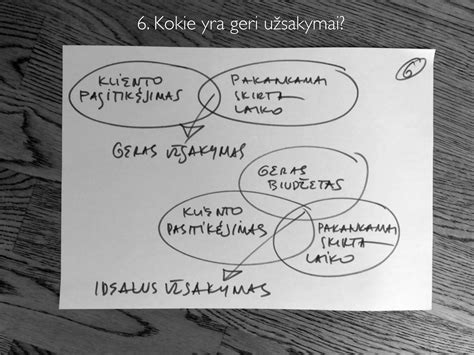 6. Kokie yra geri užsakymai?
6
KLIENTO
PASITIKĖJIMAS
PAKANKAMAI
SKIRTA
LAIKO
GERAS UŽSAKYMAS
GERAS
BIUDŽETAS
KLIENTO
PASITIKĖJIMAS
PAKANKAMAI
SKIRTA
LAIKO
IDEALUS UŽSAKYMAS